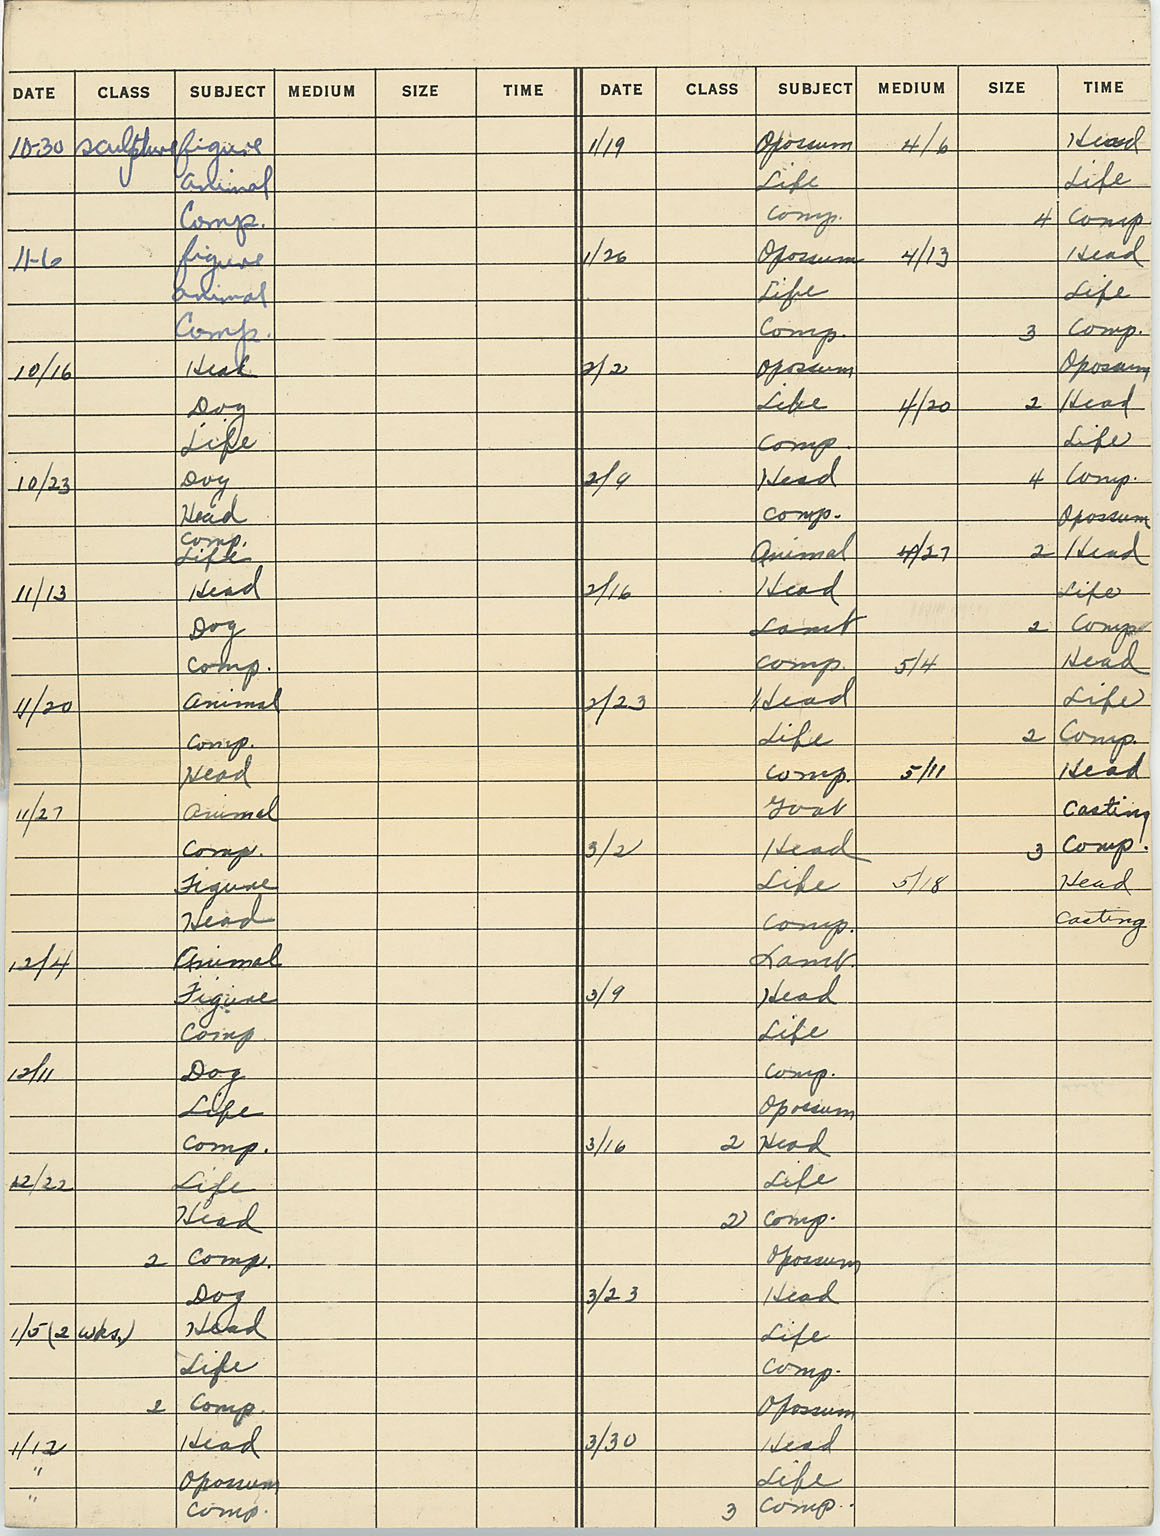 DATE CLASS SUBJECT MEDIUM SIZE TIME
10-30 sculpture figure
animal
Comp.
11-6 figure
animal
Comp.
10/16 Head
Dog
Life
10/23 Dog
Head
Comp.
Life
11/13 Head
Dog
Comp.
11/20 Animal
Comp.
Head
11/27 Animal
Comp.
Figure
Head
12/4 Animal
Figure
Comp
12/11 Dog
Life
Comp.
12/22 Life
Head
2 Comp.
Dog
1/5 (2 wks.) Head
Life
2 Comp.
1/12 Head
" Opossum
" Comp.
DATE CLASS SUBJECT MEDIUM SIZE TIME
1/19 Opossum
Life
Comp.
1/26 Opossum
Life
Comp.
2/2 Opossum
Life
Comp.
2/9 Head
Comp.
Animal
2/16 Head
Lamb
Comp.
2/23 Head
Life
Comp.
Goat
3/2 Head
Life
Comp.
Lamb.
3/9 Head
Life
Comp.
Opossum
3/16 2 Head
Life
2 Comp.
Opossum
3/23 Head
Life
Comp.
Opossum
3/30 Head
Life
3 Comp.
4/6 Head
Life
4 Comp
4/13 Head
Life
3 Comp.
Opossum
4/20 2 Head
Life
4 Comp.
Opossum
4/27 2 Head
Life
2 Comp
5/4 Head
Life
2 Comp.
5/11 Head
Casting
3 Comp.
5/18 Head
Casting